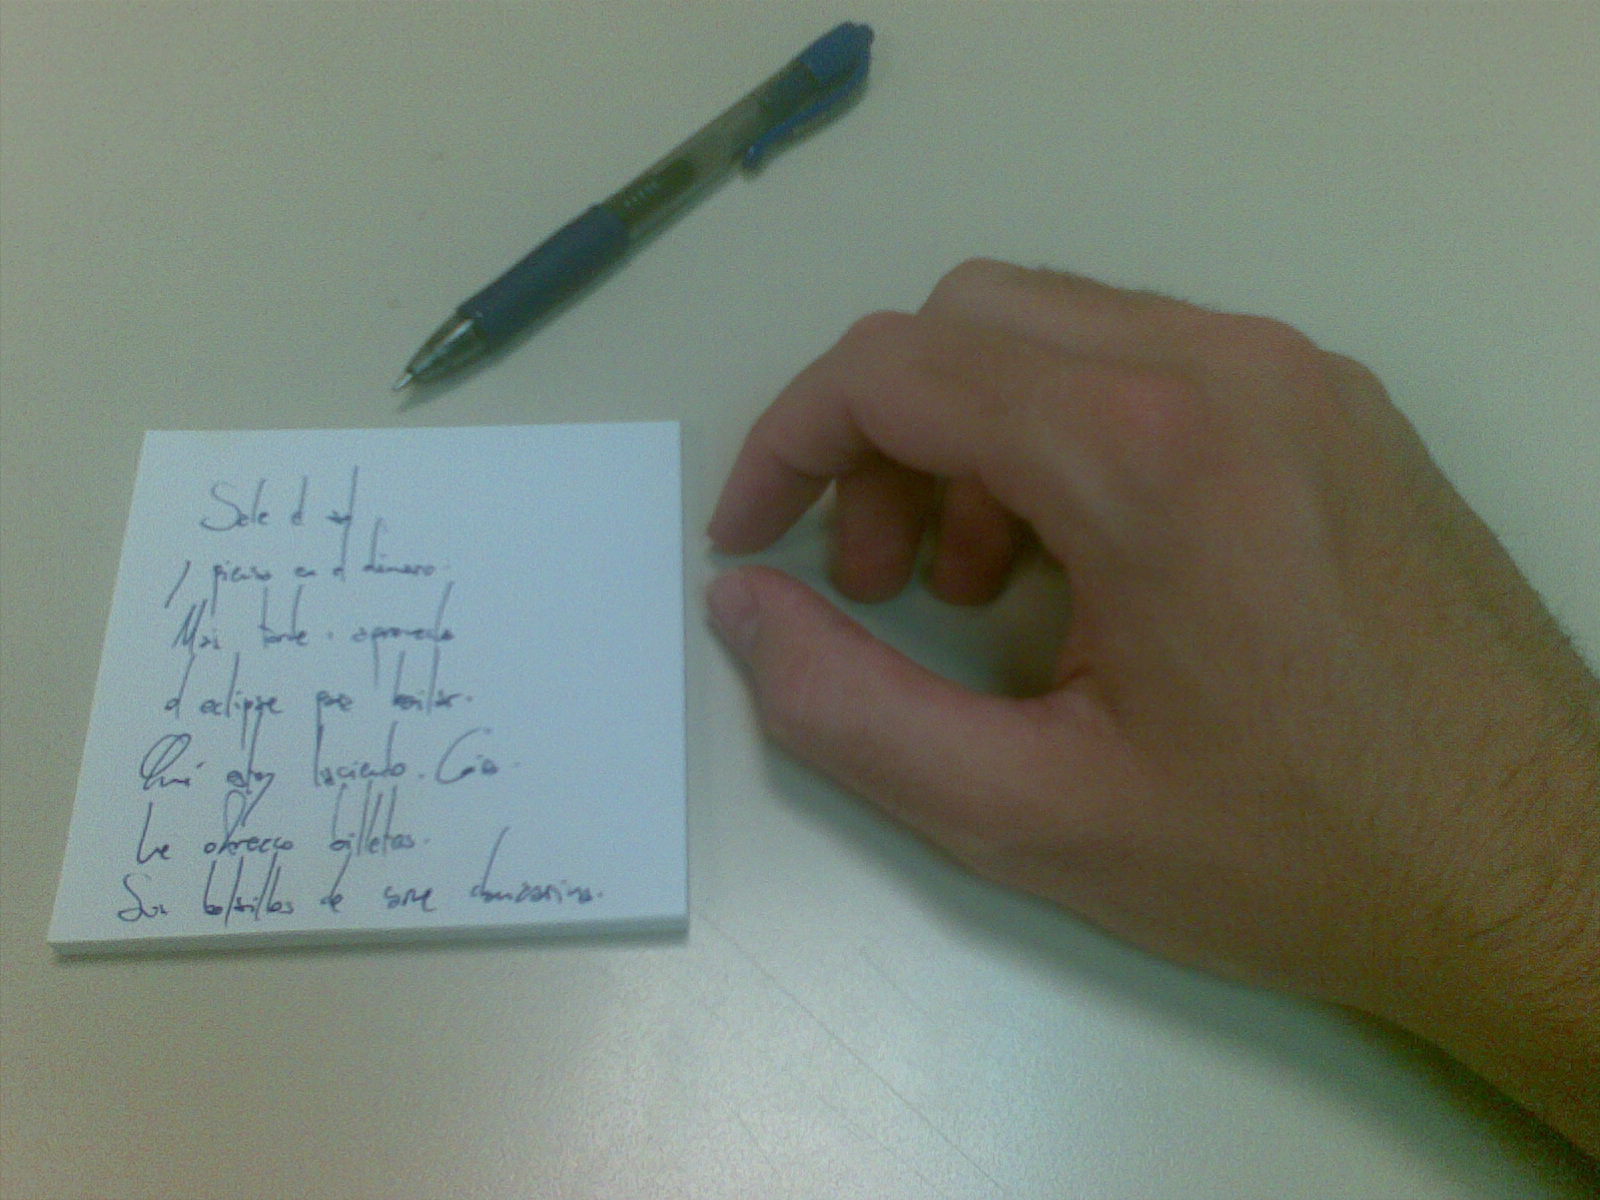 Sale el sol
y pienso en el dinero.
Más tarde, aprovecho
el eclipse para bailar.
Qué estoy haciendo.
Le ofrezco billetes.
Sus bolsillos de danzarina.